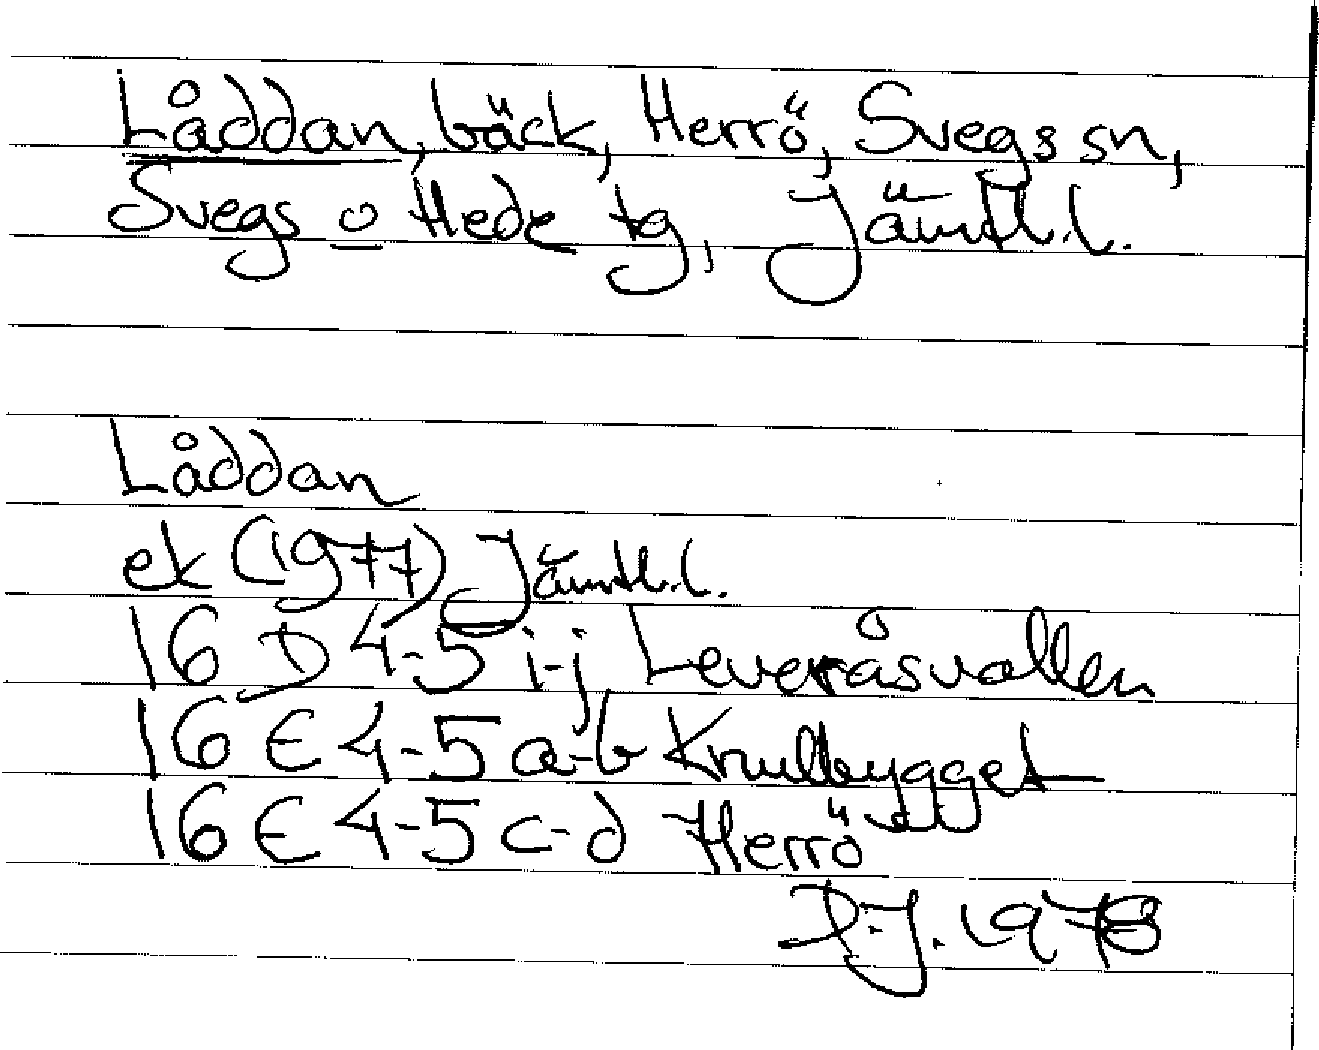 Låddan, bäck, Herrö, Svegs sn,
Svegs o Hede tg, Jämtl.l.
Låddan
ek (1977) Jämtl.l.
16 D 4-5 i-j Leveråsvallen
16 E 4-5 a-b Knullbygget
16 E 4-5 c-d Herrö
P.J. 1978